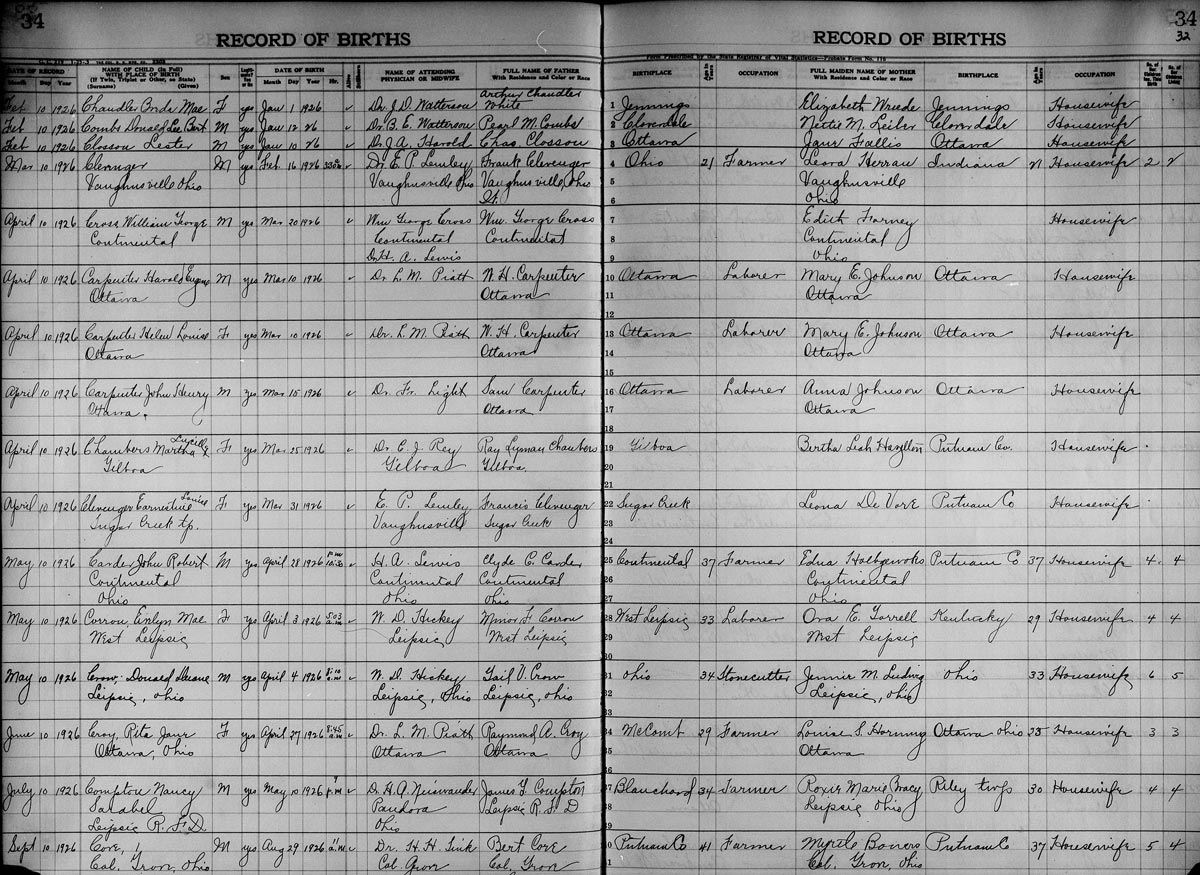 34
RECORD OF BIRTHS
DATE OF RECORD NAME OF CHILD (in Full) WITH PLACE OF BIRTH (If Twin, Triplet or Other, so State) Sex DATE OF BIRTH NAME OF ATTENDING PHYSICIAN OR MIDWIFE FULL NAME OF FATHER With Residence and Color or Race
Month Day Year (Surname) (Given) Month Day Year Hr.
Feb 10 1926 Chandler Mae F yes Jan 1 1926 Dr. J. D. Watterson Arthur Chandler
White
Feb 10 1926 Combs Donald Lee M yes Jan 12 26 Dr. B. E. Watterson Pearl M. Combs
Feb 10 1926 Closson Lester M yes Jan 10 26 Dr. J. A. Harold Chas. Closson
Mar 10 1926 Clevnger M yes Feb 16 1926 Dr. E. P. Lemley Frank Clevenger
Vaughnsville Ohio Vaughnsville Ohio Vaughnsville, Ohio
April 10 1926 Cross William George M yes Mar 20 1926 Wm George Cross Wm. George Cross
Continental Continental Continental
Dr. H. A. Lewis
April 10 1926 Carpenter Harold Eugene M yes Mar 10 1926 Dr. L. M. Piatt W. H. Carpenter
Ottawa Ottawa
April 10 1926 Carpenter Helen Louise F yes Mar 10 1926 Dr. L. M. Piatt W. H. Carpenter
Ottawa Ottawa
April 10 1926 Carpenter John Henry M yes Mar 15 1926 Dr. Fr. Light Sam Carpenter
Ottawa Ottawa
April 10 1926 Chambers Martha Lucille F yes Mar 25 1926 Dr. E. J. Rey Ray Lyman Chambers
Gilboa Gilboa Gilboa
April 10 1926 Clevenger Earnestine Louise F yes Mar 31 1926 E. P. Lemley Francis Clevenger
Sugar Creek tp. Vaughnsville Sugar Creek
May 10 1926 Carder John Robert M yes April 28 1926 p.m. 10:30 H. A. Lewis Clyde C. Carder
Continental Continental Continental
Ohio Ohio Ohio
May 10 1926 Corrou, Evelyn Mae F yes April 3 1926 5:03 a.m W. D. Hickey F. Corrou
West Leipsic Leipsic West Leipsic
May 10 1926 Crow, Donald Duane M yes April 4 1926 W. D. Hickey Gail V. Crow
Leipsic, Ohio Leipsic, Ohio Leipsic, Ohio
June 10 1926 Croy, Rita Jane F yes April 27 1926 8:45 a.m Dr. L. M. Piatt Raymond A. Croy
Ottawa, Ohio Ottawa Ottawa
July 10 1926 Compton Nancy M yes May 10 1926 9 p.m D. H. A. Neiswander James F. Compton
Pandora Leipsic R. F. D
Leipsic R. F. D. Ohio
Sept 10 1926 Core, M yes Aug 29 1926 11 a.m Dr. H. H. Sink Bert Core
Col. Grove, Ohio Col. Grove Col. Grove
34
32
RECORD OF BIRTHS
Form Prescribed by the State Registrar of Vital Statistics—Probate Form No. 116
BIRTHPLACE Age in Years OCCUPATION FULL MAIDEN NAME OF MOTHER With Residence and Color or Race BIRTHPLACE Age in Years OCCUPATION
1 Jennings Elizabeth Jennings Housewife
2 Cloverdale Nettie M. Leiber Cloverdale Housewife
3 Ottawa Jane Fallis Ottawa Housewife
4 Ohio 21 Farmer Leora Indiana 21 Housewife 2 2
5 Vaughnsville
6 Ohio
7 Edith Farney Housewife
8 Continental
9 Ohio
10 Ottawa Laborer Mary E. Johnson Ottawa Housewife
11 Ottawa
12
13 Ottawa Laborer Mary E. Johnson Ottawa Housewife
14 Ottawa
15
16 Ottawa Laborer Anna Johnson Ottawa Housewife
17 Ottawa
18
19 Gilboa Bertha Leah Hazelton Putnam Co. Housewife
20
21
22 Sugar Creek Leona De Vore Putnam Co Housewife
23
24
25 Continental 37 Farmer Edna Putnam Co 37 Housewife 4 4
26 Continental
27 Ohio
28 West Leipsic 33 Laborer Ora E. Kentucky 29 Housewife 4 4
29 West Leipsic
30
31 Ohio 34 Stonecutter Jennie M. Ludwig Ohio 33 Housewife 6 5
32 Leipsic, Ohio
33
34 McComb 29 Farmer Louise S. Hornung Ottawa Ohio 25 Housewife 3 3
35 Ottawa
36
37 Blanchard 34 Farmer Roxie Marie Riley twp 30 Housewife 4 4
38 Leipsic Ohio
39
40 Putnam Co 41 Farmer Myrtle Bowers Putnam Co 37 Housewife 5 4
41 Col. Grove, Ohio